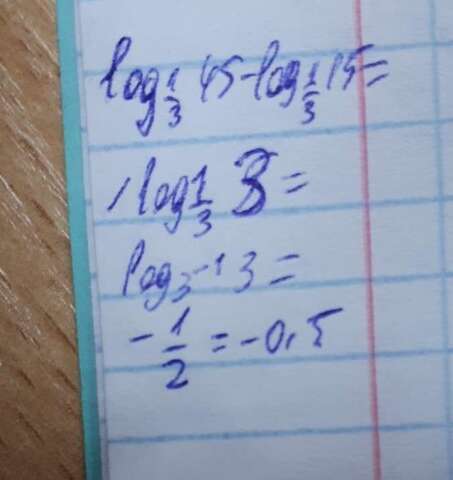 log 1/3 45 - log 1/3 15 =
/ log 1/3 3 =
log 3^-1 3 =
- 1/2 = -0,5